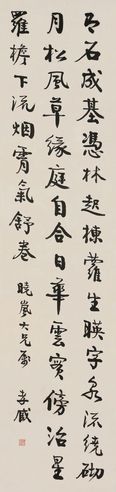 即石成基憑林起棟蘿生暎宇泉流繞砌
月松風草緣庭自合日華雲實傍沼星
羅檐下流烟霄氣舒卷
曉嵐大兄屬 孝臧